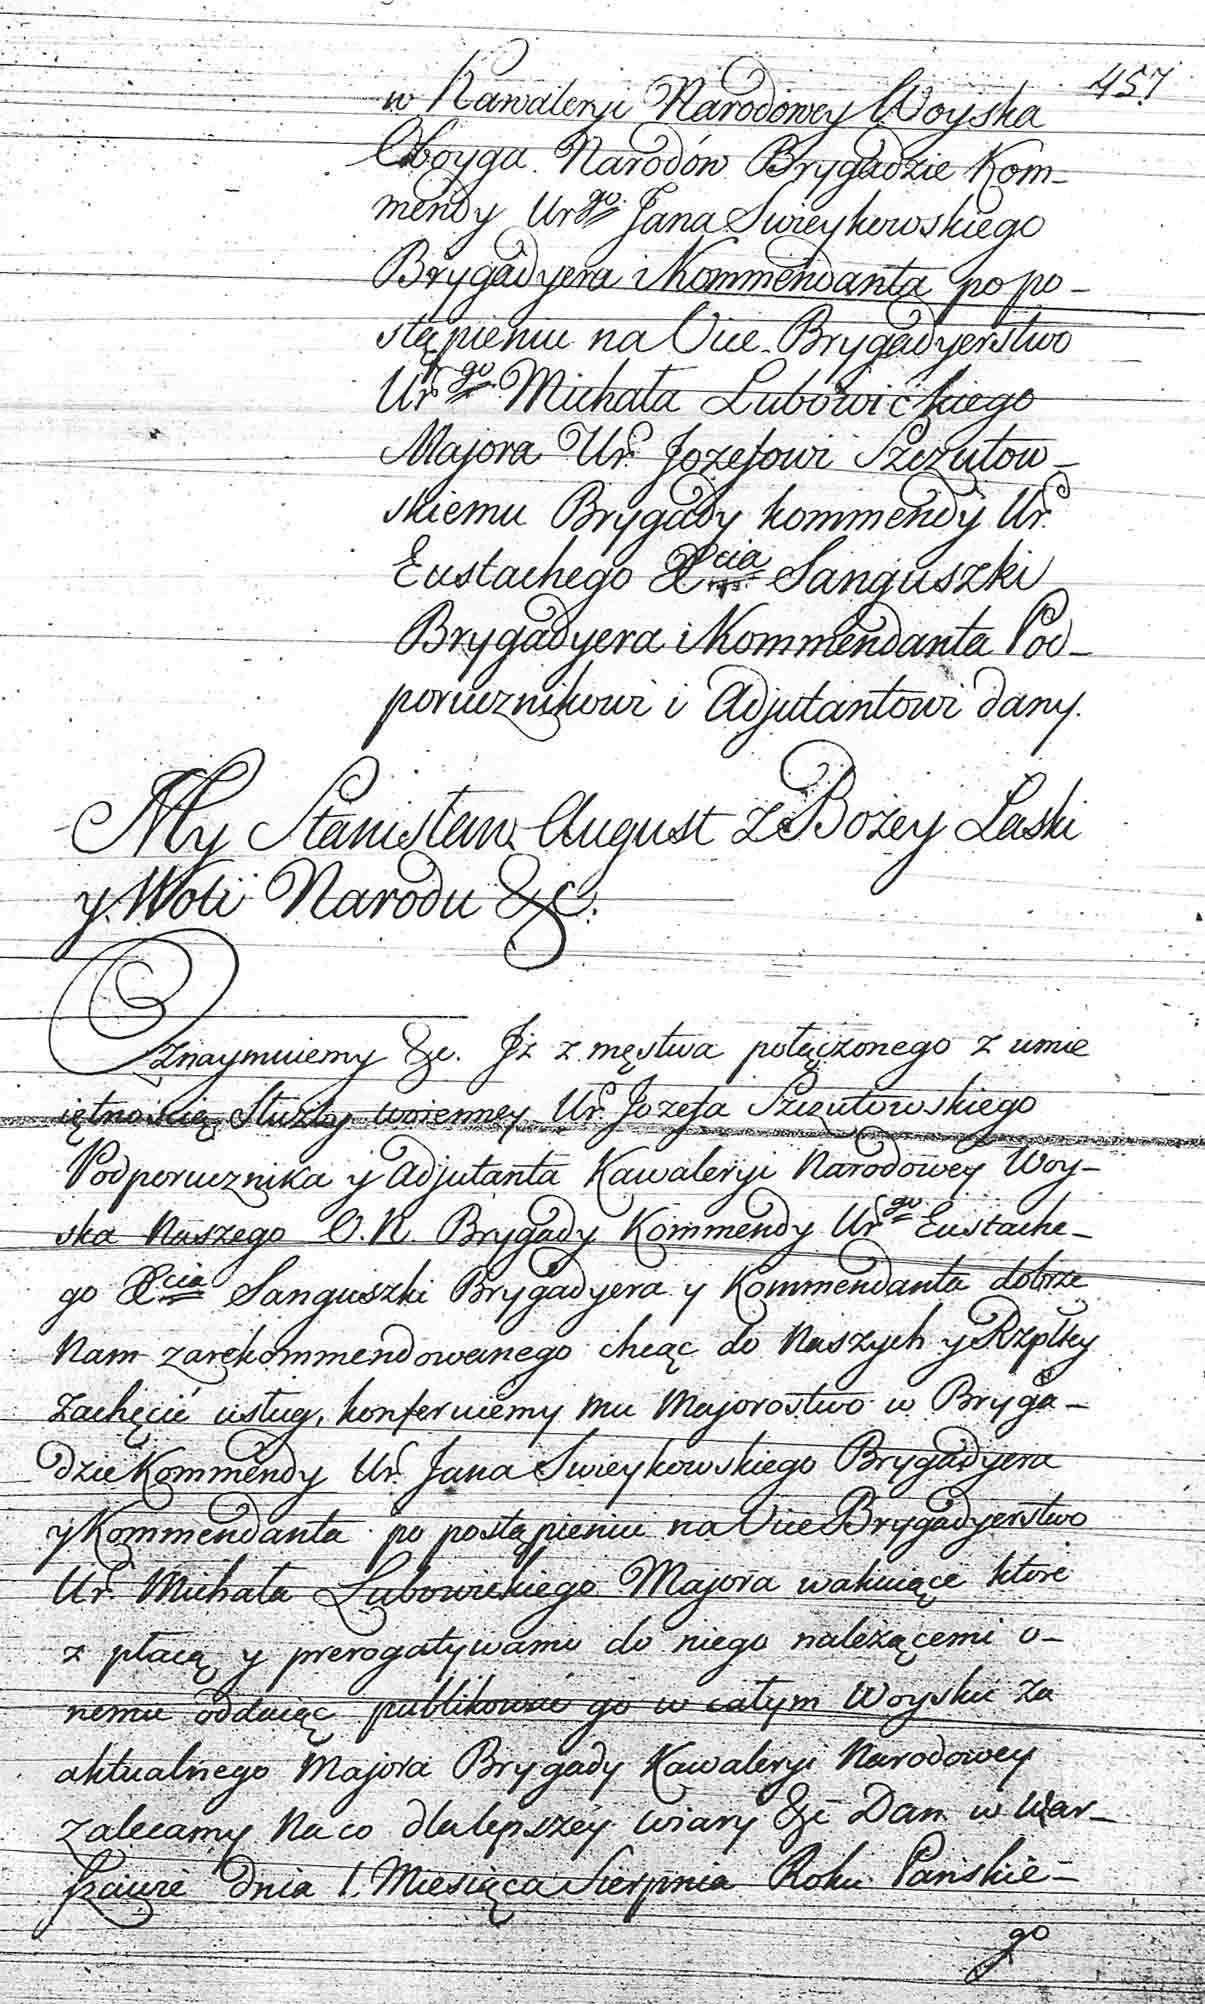 457
w Kawaleryi Narodowey Woyska
Oboyga Narodów Brygadzie Kom-
mendy Urgo Jana Swieykowskiego
Brygadyera i Kommendanta po po-
stąpieniu na Vice-Brygadyerstwo
Urgo Michała Lubowickiego
Majora Ur. Jozefowi Szczutow-
skiemu Brygady kommendy Ur.
Eustachego Xcia Sanguszki
Brygadyera i Kommendanta Pod-
porucznikowi i Adjutantowi dany.
My Stanisław August z Bożey Łaski
y Woli Narodu &c.
Oznaymuiemy &c. Jż z męstwa połączonego z umie
iętnością Służby woienney Ur. Jozefa Szczutowskiego
Podporucznika y Adjutanta Kawaleryi Narodowey Woy-
ska Naszego O. N. Brygady Kommendy Urgo Eustache-
go Xcia Sanguszki Brygadyera y Kommendanta dobrze
Nam zarekommendowanego chcąc do Naszych y Rzpltey
zachęcić usług, konferuiemy mu Majorostwo w Bryga-
dzie Kommendy Ur. Jana Swieykowskiego Brygadyera
y Kommendanta po postąpieniu na Vice Brygadyerstwo
Ur. Michała Lubowickiego Majora wakuiące które
z płacą y prerogatywami do niego należącemi o-
nemu oddaiąc publikować go w całym Woysku za
aktualnego Majora Brygady Kawaleryi Narodowey
zalecamy Na co dla lepszey wiary &c Dan w War-
szawie dnia 1. Miesiąca Sierpnia Roku Pańskie-
go